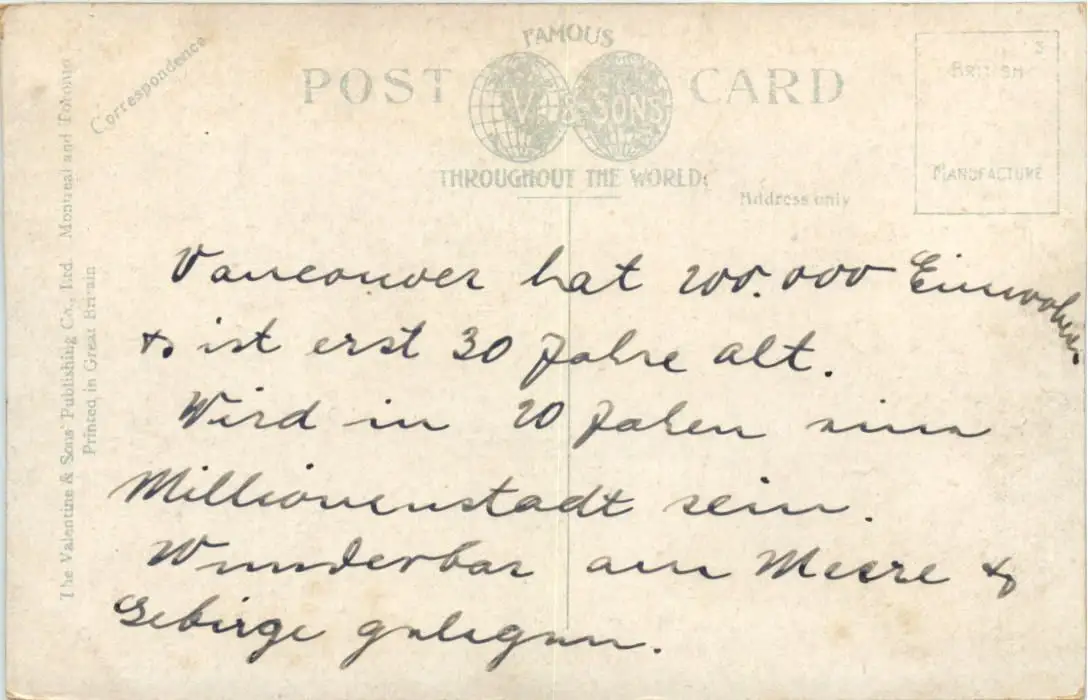 FAMOUS
POST CARD
V. & SONS
THROUGHOUT THE WORLD
Correspondence
Address only
3
BRITISH
MANUFACTURE
The Valentine & Sons' Publishing Co., Ltd. Montreal and Toronto
Printed in Great Britain
Vancouver hat 200.000 Einwohner
& ist erst 30 Jahre alt.
Wird in 20 Jahren eine
Millionenstadt sein.
Wunderbar am Meere &
Gebirge gelegen.